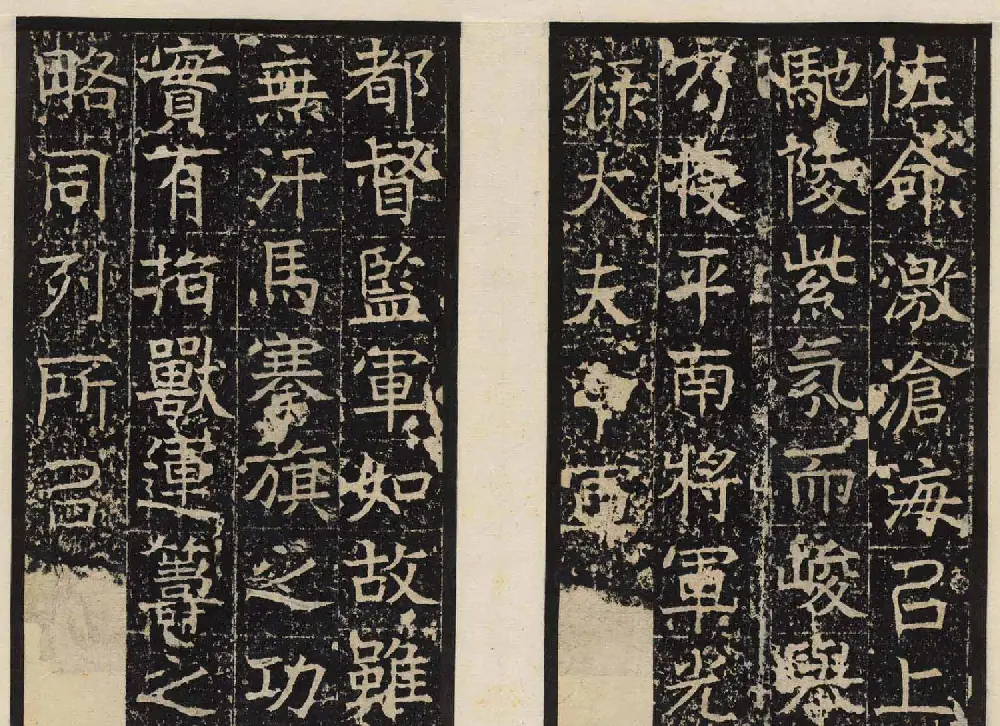 佐命激滄海㠯上
馳陵紫氛而峻舉
乃授平南將軍光
祿大夫中軍
都督監軍如故雖
無汗馬搴旗之功
實有指獸運籌之
略同列所